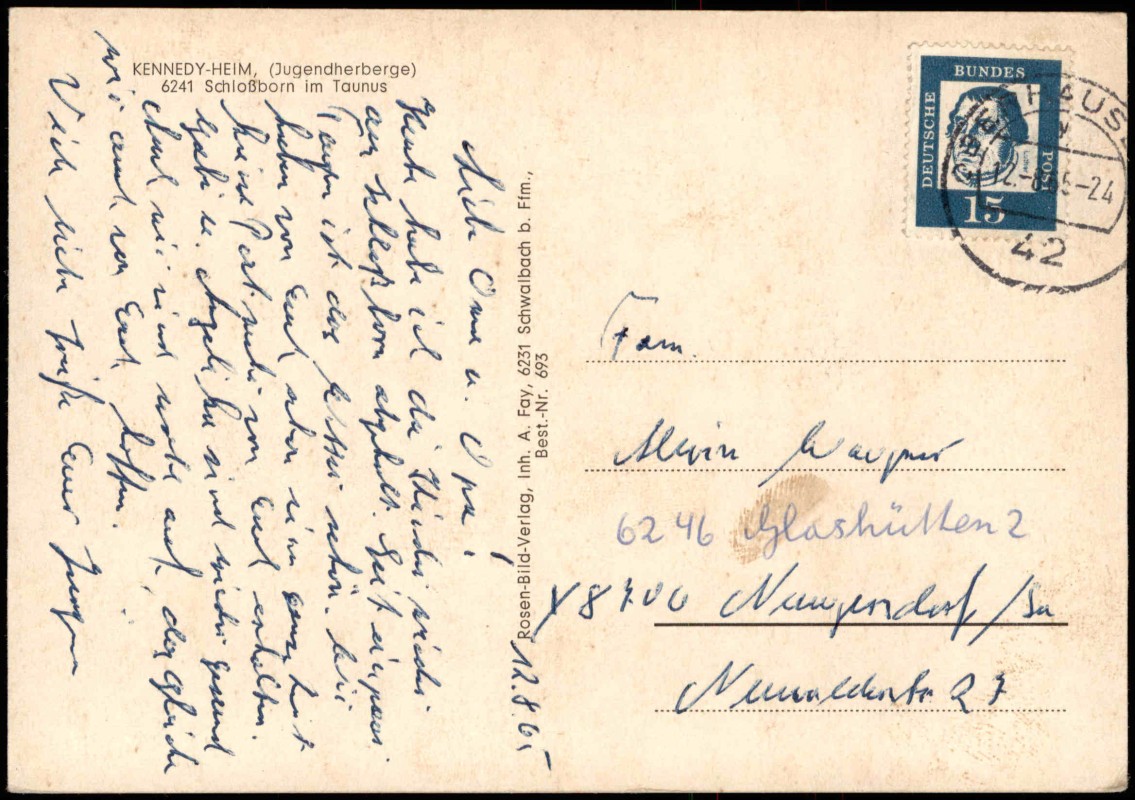 KENNEDY-HEIM, (Jugendherberge)
6241 Schloßborn im Taunus
12.8.65
Liebe Oma u. Opa!
Heute habe ich die Kinder wieder
aus Schloßborn abgeholt. Seit ein paar
Tagen ist das Wetter schön. Wir
haben von Euch aber eine ganze Zeit
keine Post mehr von Euch erhalten.
Gabi u. sind wieder gesund
und wir sind wohl auf, das gleiche
wir auch von Euch hoffen.
Viele liebe Grüße Euer Jürgen
Rosen-Bild-Verlag, Inh. A. Fay, 6231 Schwalbach b. Ffm.,
Best.-Nr. 693
DEUTSCHE
BUNDES
POST
15
HAUS
12.-8.65-24
42
Fam.
Alwin Wagner
6246 Glashütten 2
X8700 Neugersdorf/Sa
27